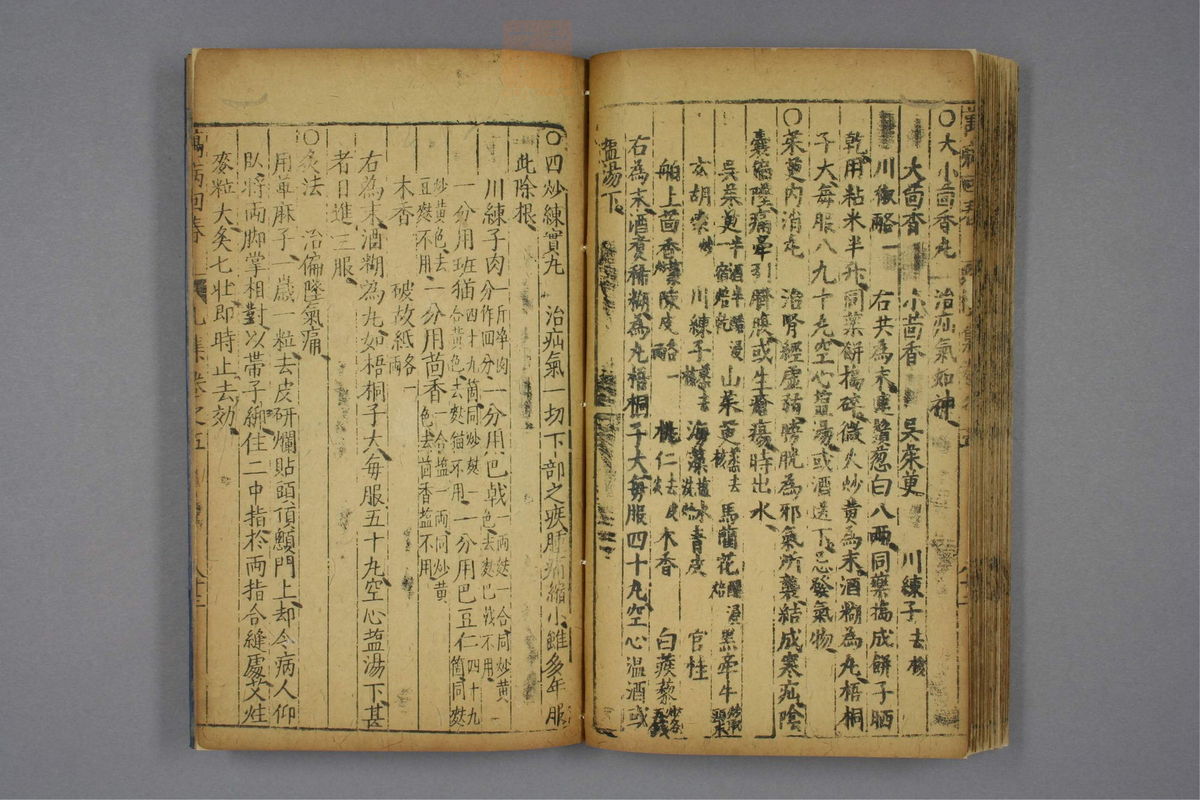 ○大小茴香丸 治疝氣如神
大茴香 小茴香 吳茱萸 川練子去核
川椒各一 右共為末連鬚葱白八兩同藥搗成餅子晒
乾用粘米半升同藥餅搗碎微火炒黃為末酒糊為丸梧桐
子大每服八九十丸空心塩湯或酒送下忌發氣物
○茱萸內消丸 治腎經虛弱膀胱為邪氣所襲結成寒疝陰
囊偏墜痛牽引臍腹或生瘡瘍時出水
吳茱萸半酒半醋浸一宿焙乾 山茱萸蒸去核 馬藺花醋浸焙 黑牽牛
玄胡索炒 川練子蒸去核 海藻 青皮 官桂
舶上茴香 陳皮各一兩 桃仁去皮 木香 白蒺藜
右為末酒煑稀糊為丸梧桐子大每服四十丸空心温酒或
塩湯下
○四炒練實丸 治疝氣一切下部之疾腫痛縮小雖多年服
此除根
川練子肉一斤凈肉分作四分 一分用巴戟一兩麩一合同炒黃色去麩巴戟不用
一分用班猫四十九箇同炒麩一合黃色去麩猫不用 一分用巴豆仁四十九箇同麩
炒黃色去豆麩不用 一分用茴香一合塩一兩同炒黃色去茴香塩不用
木香 破故紙各一兩
右為末酒糊為丸如梧桐子大每服五十丸空心塩湯下甚
者日進三服
○灸法 治偏墜氣痛
用萆麻子一歲一粒去皮研爛貼頭頂顖門上却令病人仰
臥將兩脚掌相對以帶子綁住二中指於兩指合縫處艾炷
麥粒大灸七壮即時止去効
萬病回春 九集卷之五